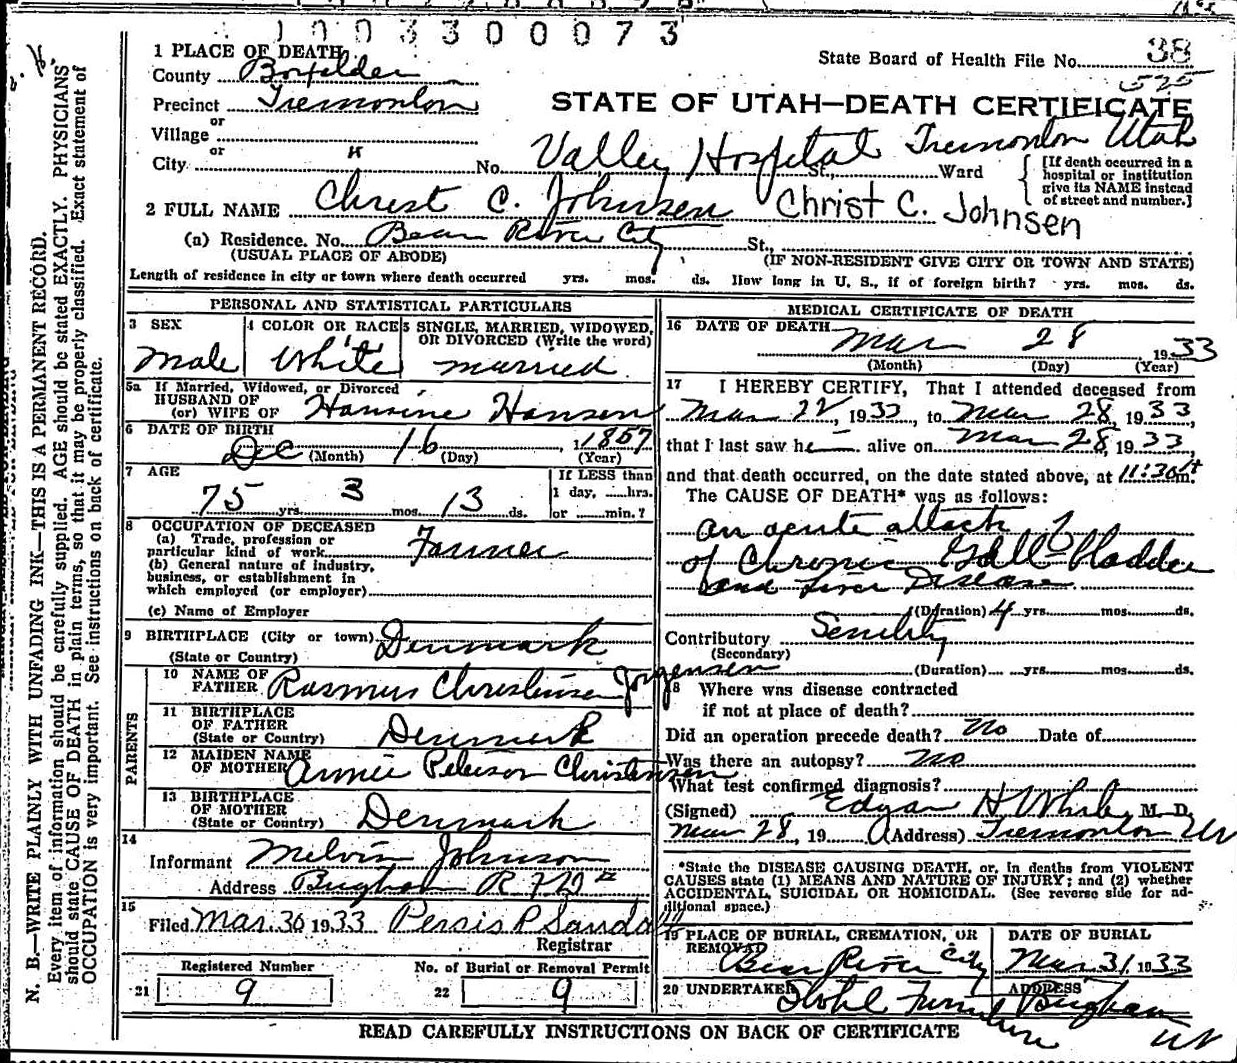 1003300073
1 PLACE OF DEATH
State Board of Health File No. 38
County Boxelder
525
Precinct Tremonton
STATE OF UTAH—DEATH CERTIFICATE
or
Village
or
City No. Valley Hospital Tremonton Utah St., Ward
[If death occurred in a hospital or institution give its NAME instead of street and number.]
2 FULL NAME Christ C. Johnsen Christ C. Johnsen
(a) Residence. No. Bear River City St.,
(USUAL PLACE OF ABODE) (IF NON-RESIDENT GIVE CITY OR TOWN AND STATE)
Length of residence in city or town where death occurred yrs. mos. ds. How long in U. S., if of foreign birth? yrs. mos. ds.
PERSONAL AND STATISTICAL PARTICULARS
3 SEX 4 COLOR OR RACE 5 SINGLE, MARRIED, WIDOWED,
OR DIVORCED (Write the word)
Male White married
5a If Married, Widowed, or Divorced
HUSBAND OF
(or) WIFE OF Hansine Hansen
6 DATE OF BIRTH
Dec 16 1857
(Month) (Day) (Year)
7 AGE If LESS than
75 yrs. 3 mos. 13 ds. 1 day, hrs.
or min.?
8 OCCUPATION OF DECEASED
(a) Trade, profession or
particular kind of work Farmer
(b) General nature of industry,
business, or establishment in
which employed (or employer)
(c) Name of Employer
9 BIRTHPLACE (City or town) Denmark
(State or Country)
PARENTS
10 NAME OF
FATHER Rasmus Christensen Jorgensen
11 BIRTHPLACE
OF FATHER
(State or Country) Denmark
12 MAIDEN NAME
OF MOTHER Annie Peterson Christensen
13 BIRTHPLACE
OF MOTHER
(State or Country) Denmark
14
Informant Melvin Johnson
Address Brigham R F D
15
Filed Mar. 30 1933 Persis P
Registrar
Registered Number No. of Burial or Removal Permit
21 9 22 9
MEDICAL CERTIFICATE OF DEATH
16 DATE OF DEATH Mar 28 1933
(Month) (Day) (Year)
17 I HEREBY CERTIFY, That I attended deceased from
Mar 22, 1933, to Mar 28 1933,
that I last saw he alive on Mar 28, 1933,
and that death occurred, on the date stated above, at 11:30 m.
The CAUSE OF DEATH* was as follows:
an acute attack
of Chronic Gall-bladder
and Liver Disease
(Duration) 4 yrs. mos. ds.
Contributory Senility
(Secondary)
(Duration) yrs. mos. ds.
18 Where was disease contracted
if not at place of death?
Did an operation precede death? No Date of
Was there an autopsy? no
What test confirmed diagnosis?
(Signed) Edgar H White, M. D.
Mar 28, 19 (Address) Tremonton Ut
*State the DISEASE CAUSING DEATH, or, in deaths from VIOLENT
CAUSES state (1) MEANS AND NATURE OF INJURY; and (2) whether
ACCIDENTAL, SUICIDAL OR HOMICIDAL. (See reverse side for ad-
ditional space.)
19 PLACE OF BURIAL, CREMATION, OR REMOVAL DATE OF BURIAL
Bear River City Mar 31 1933
20 UNDERTAKER ADDRESS
Furniture Brigham
Ut
READ CAREFULLY INSTRUCTIONS ON BACK OF CERTIFICATE
N. B.—WRITE PLAINLY WITH UNFADING INK—THIS IS A PERMANENT RECORD.
Every item of information should be carefully supplied. AGE should be stated EXACTLY. PHYSICIANS
should state CAUSE OF DEATH in plain terms, so that it may be properly classified. Exact statement of
OCCUPATION is very important. See instructions on back of certificate.